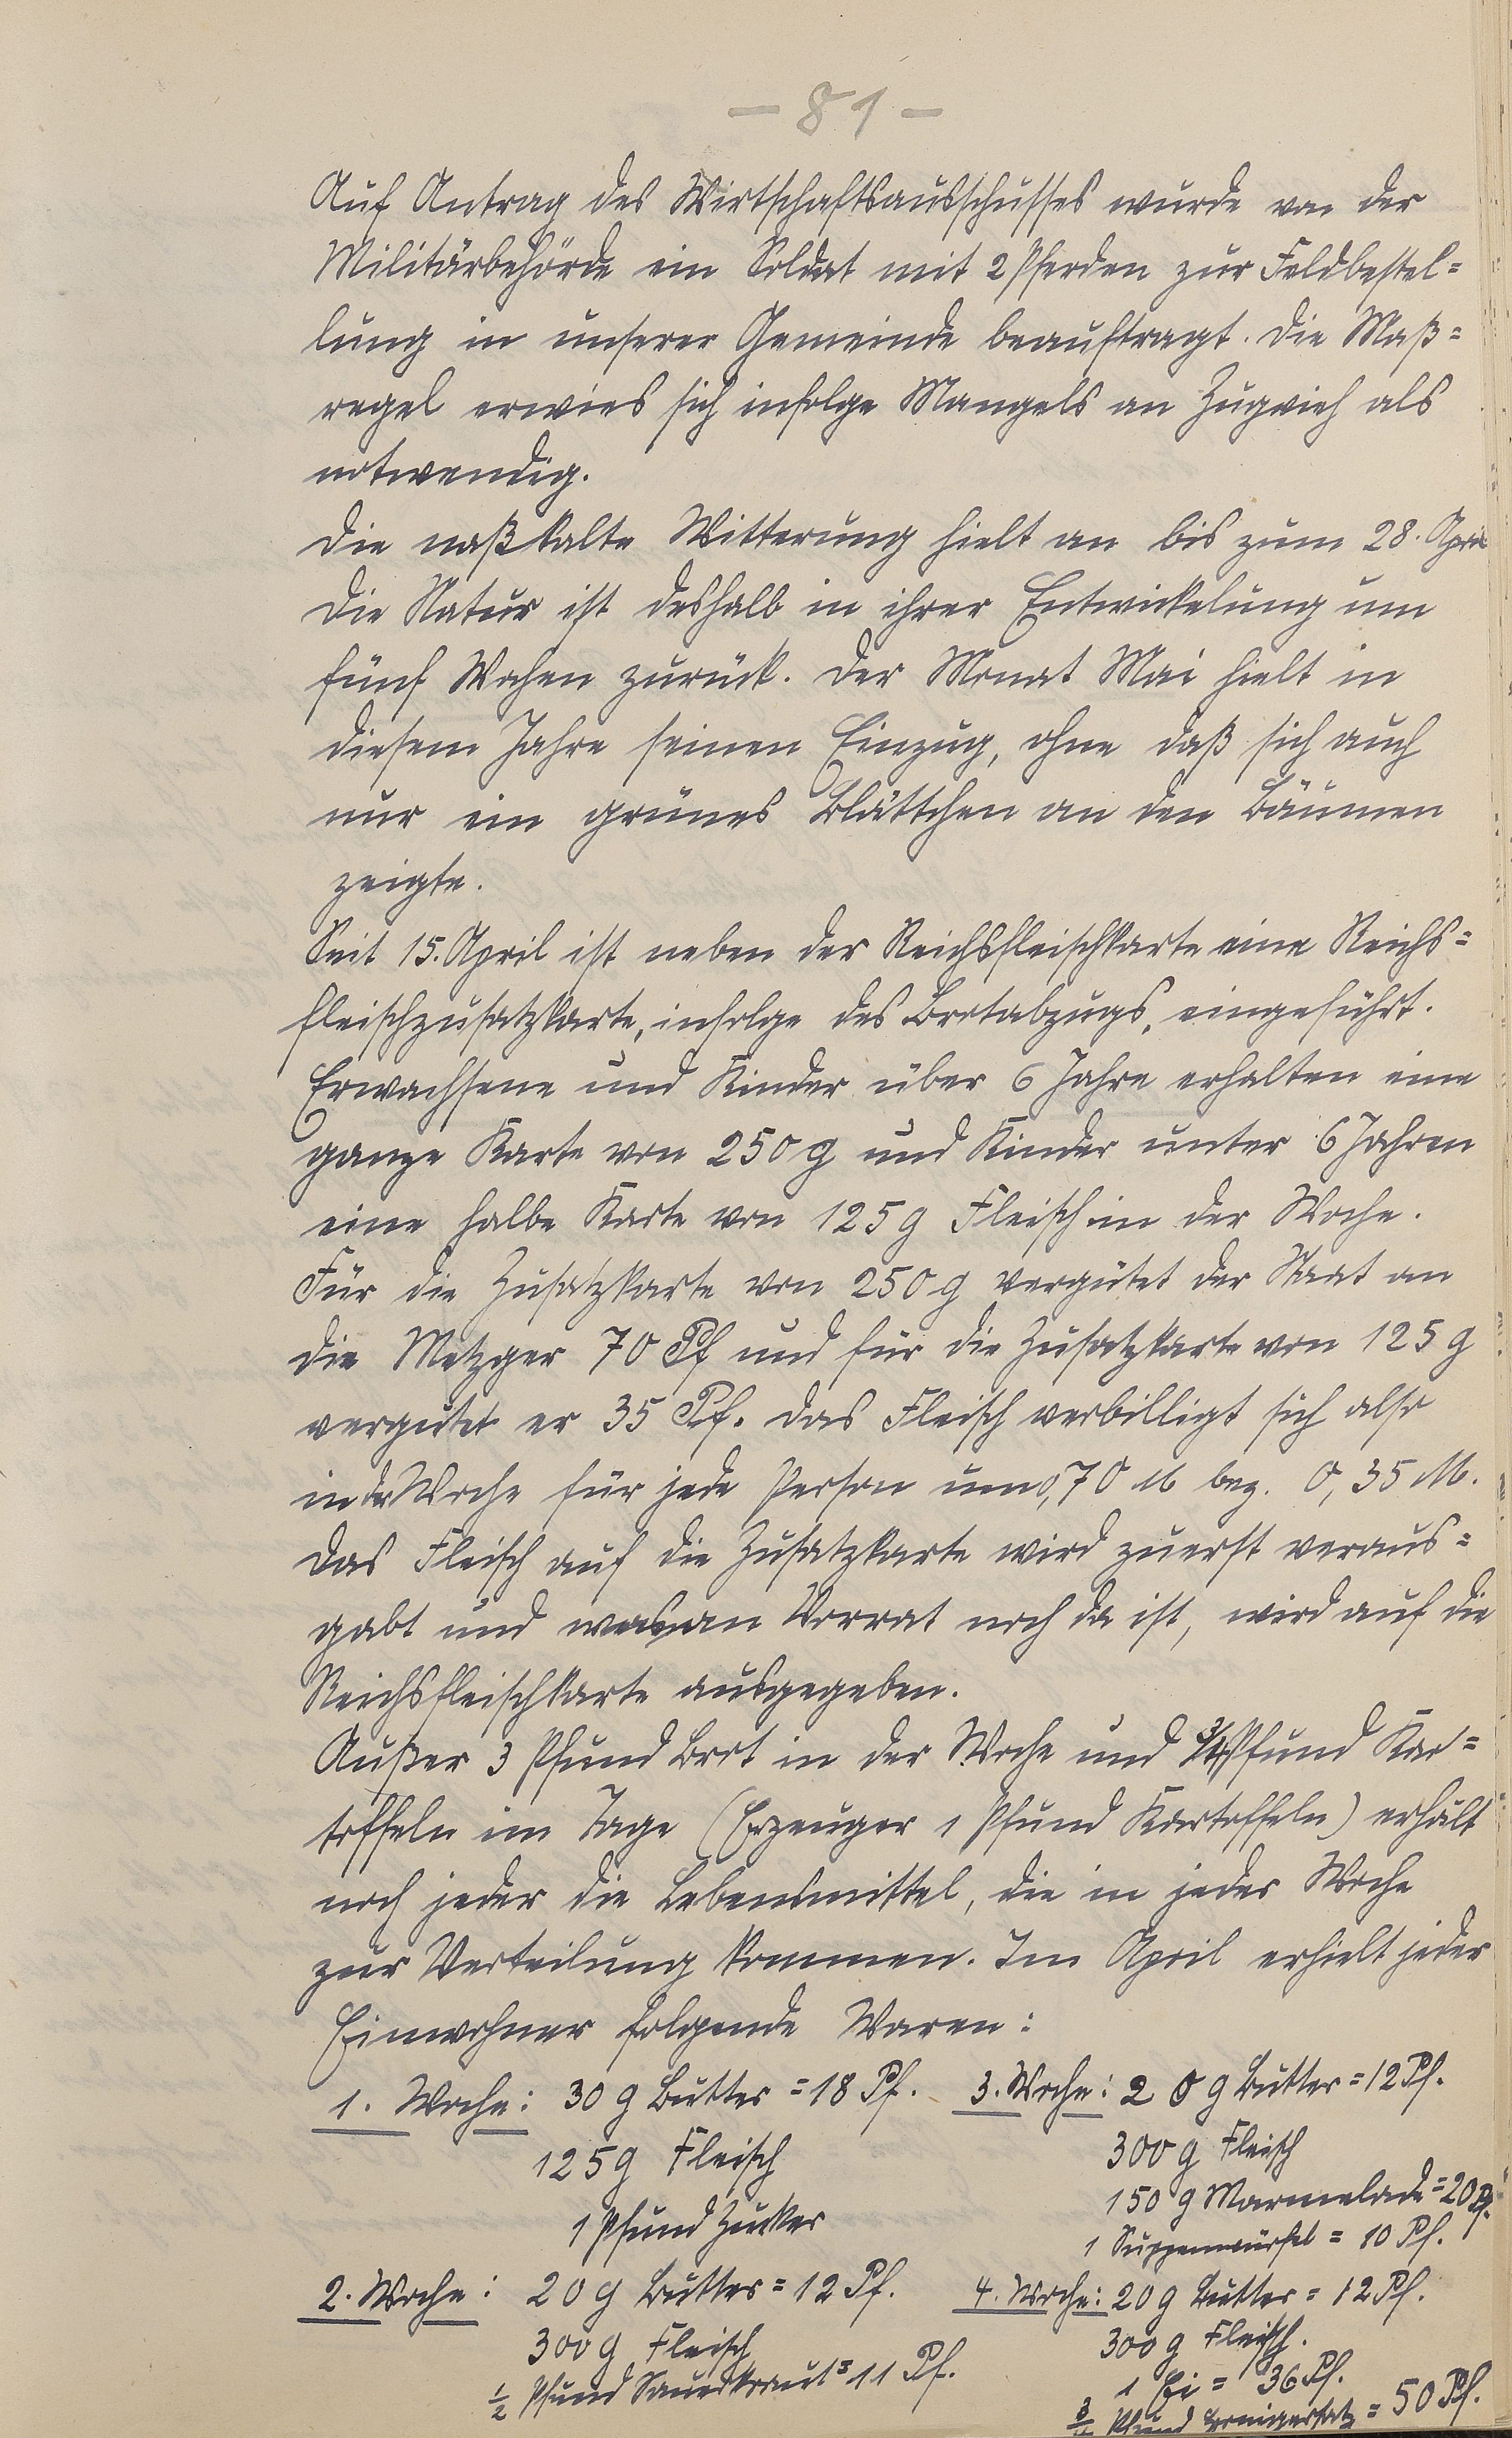 — 81 —
Auf Antrag des Wirtschaftsausschusses wurde von der
Militärbehörde ein Soldat mit 2 Pferden zur Feldbestel=
lung in unserer Gemeinde beauftragt. Die Maß=
regel erwies sich infolge Mangels an Zugvieh als
notwendig.
Die naßkalte Witterung hielt an bis zum 28. April
Die Natur ist deshalb in ihrer Entwickelung um
fünf Wochen zurück. Der Monat Mai hielt in
diesem Jahre seinen Einzug, ohne daß sich auch
nur ein grünes Blättchen an den Bäumen
zeigte.
Seit 15. April ist neben der Reichsfleischkarte eine Reichs=
fleischzusatzkarte, infolge des Brotabzugs, eingeführt.
Erwachsene und Kinder über 6 Jahre erhalten eine
ganze Karte von 250 g und Kinder unter 6 Jahren
eine halbe Karte von 125 g Fleisch in der Woche.
Für die Zusatzkarte von 250 g vergütet der Staat an
die Metzger 70 Pf und für die Zusatzkarte von 125 g
vergütet er 35 Pf. Das Fleisch verbilligt sich also
in der Woche für jede Person um 0,70 M bez. 0,35 M.
Das Fleisch auf die Zusatzkarte wird zuerst veraus=
gabt und was an Vorrat noch da ist, wird auf die
Reichsfleischkarte ausgegeben.
Außer 3 Pfund Brot in der Woche und 3/4 Pfund Kar=
toffeln im Tage (Erzeuger 1 Pfund Kartoffeln) erhält
noch jeder die Lebensmittel, die in jeder Woche
zur Verteilung kommen. Im April erhielt jeder
Einwohner folgende Waren:
1. Woche: 30 g Butter = 18 Pf.
125 g Fleisch
1 Pfund Zucker
2. Woche: 20 g Butter = 12 Pf.
300 g Fleisch
1/2 Pfund Sauerkraut = 11 Pf.
3. Woche: 20 g Butter = 12 Pf.
300 g Fleisch
150 g Marmelade = 20 Pf.
1 Suppenwürfel = 10 Pf.
4. Woche: 20 g Butter = 12 Pf.
300 g Fleisch.
1 Ei = 36 Pf.
3/4 Pfund Honigersatz = 50 Pf.